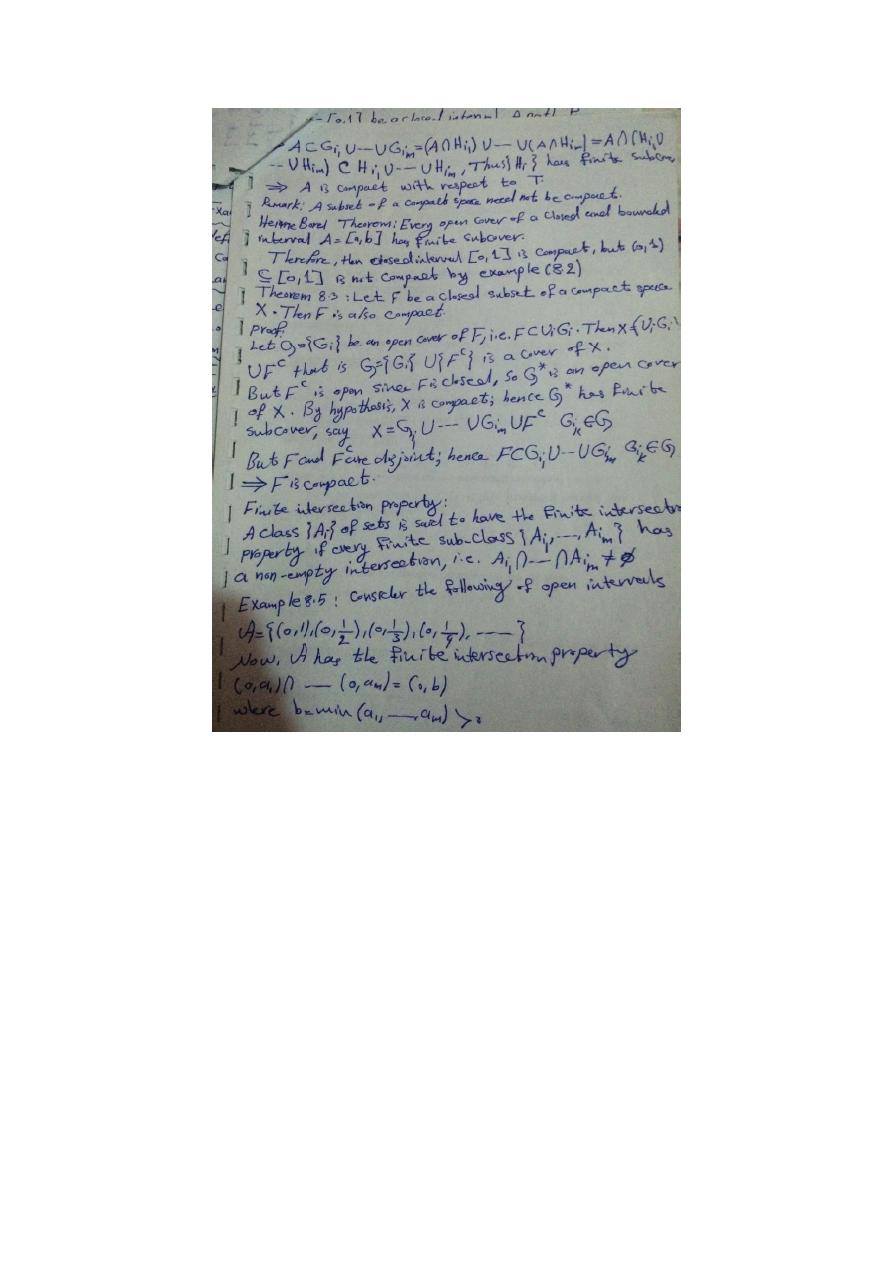 [0,1] be a closed interval
A⊂Gi₁∪---∪Gim=(A∩Hi₁)∪---∪(A∩Him)=A∩(Hi₁∪
---∪Him) ⊂ Hi₁∪---∪Him, Thus{Hi} has finite subcov
⇒ A is compact with respect to T.
Remark: A subset of a compact space need not be compact.
Heine Borel Theorem: Every open cover of a closed and bounded
interval A=[a,b] has finite subcover.
Therefore, then closed interval [0,1] is compact, but (0,1)
⊆ [0,1] is not compact by example (8.2)
Theorem 8.3: Let F be a closed subset of a compact space
X. Then F is also compact.
Proof:
Let G={Gi} be an open cover of F, i.e. F⊂∪iGi. Then X=(∪iGi)
∪F^c that is G={Gi}∪{F^c} is a cover of X.
But F^c is open since F is closed, so G* is an open cover
of X. By hypothesis, X is compact; hence G* has finite
subcover, say X=Gi₁∪---∪Gim∪F^c Gik∈G
But F and F^c are disjoint; hence F⊂Gi₁∪---∪Gim Gik∈G
⇒ F is compact.
Finite intersection property:
A class {Ai} of sets is said to have the finite intersection
property if every finite sub-class {Ai₁,---,Aim} has
a non-empty intersection, i.e. Ai₁∩---∩Aim≠∅
Example 8.5: Consider the following of open intervals
A={(0,1),(0,1/2),(0,1/3),(0,1/4),---}
Now, A has the finite intersection property
(0,a₁)∩---(0,am)=(0,b)
where b=min(a₁,---,am)>0